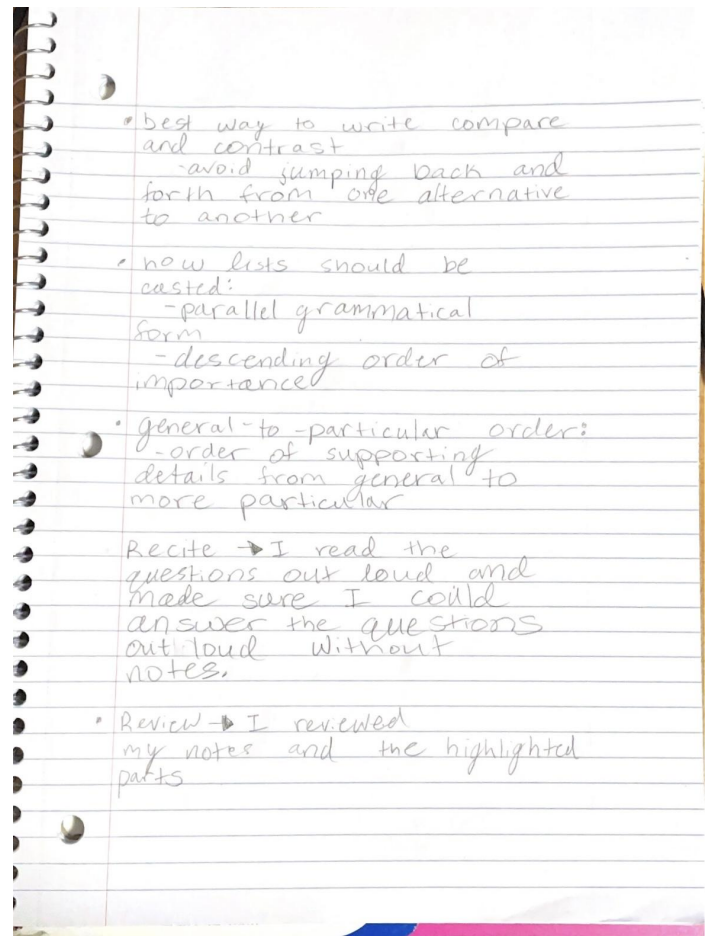 • best way to write compare
and contrast
-avoid jumping back and
forth from one alternative
to another
• how lists should be
casted:
-parallel grammatical
form
-descending order of
importance
• general-to-particular order:
-order of supporting
details from general to
more particular
Recite → I read the
questions out loud and
made sure I could
answer the questions
out loud without
notes.
• Review → I reviewed
my notes and the highlighted
parts